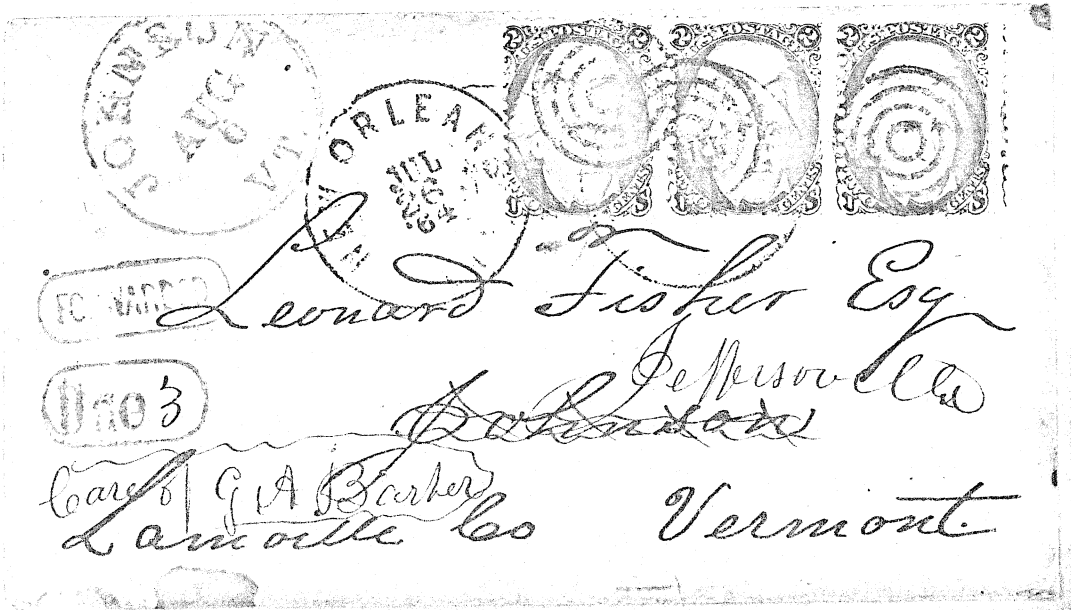 JOHNSON VT
AUG 6
NEW ORLEANS
JUL 26 64
2 U.S. POSTAGE 2
2 U.S. POSTAGE 2
2 U.S. POSTAGE 2
U 2 S
U 2 S
U 2 S
FORWARDED
Leonard Fisher Esq
Due 3
Jeffersonville
Johnson
Care of G A Barber
Lamoille Co Vermont